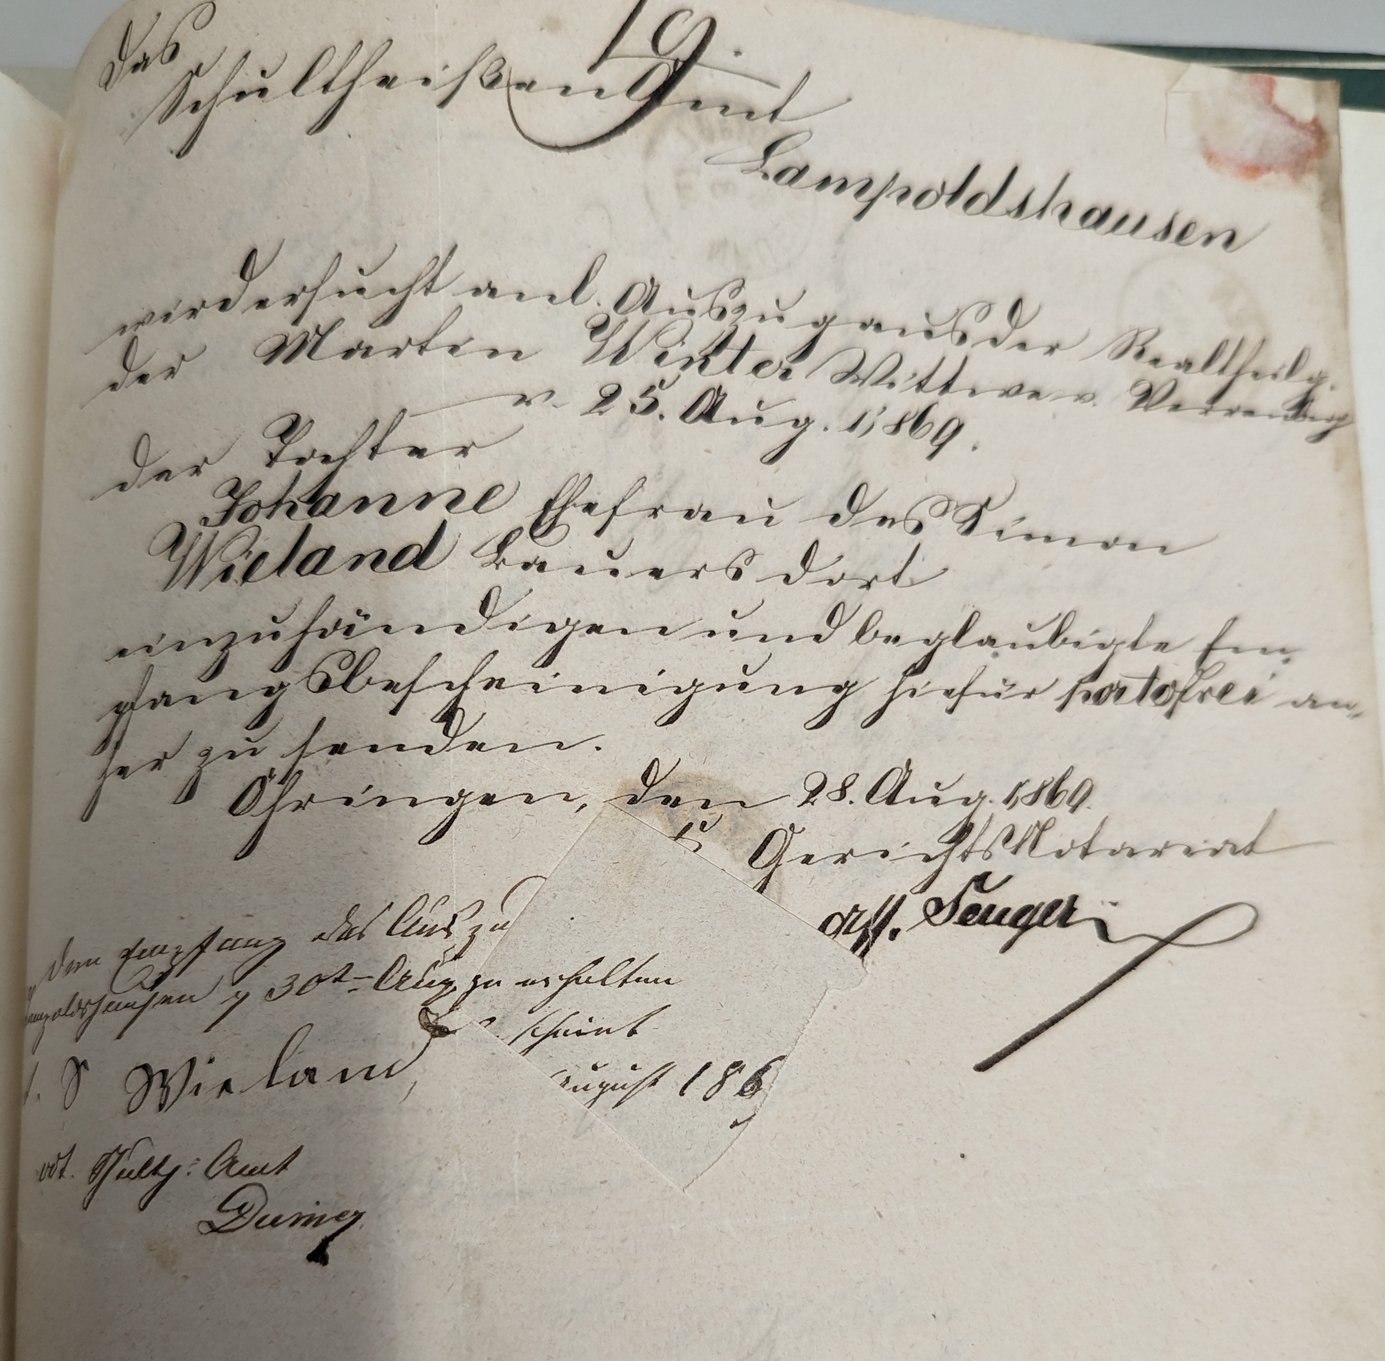 19.
Das
Schultheißenamt
Lampoldshausen
wird ersucht anl. Auszug aus der Realtheilg.
der Martin Winter Wittwe v. Verrenberg
v. 25. Aug. 1869.
der Tochter
Johanne Ehefrau des Simon
Wieland Bauers dort
einzuhändigen und beglaubigte Em-
pfangsbescheinigung hiefür portofrei an-
her zu senden.
Öhringen, den 28. Aug. 1869.
K GerichtsNotariat
Ass. Senger
den Empfang des Auszu
zu erhalten
Lampoldshausen 30t Aug
scheint
August 186
t. S Wieland,
vdt. Schulth: Amt